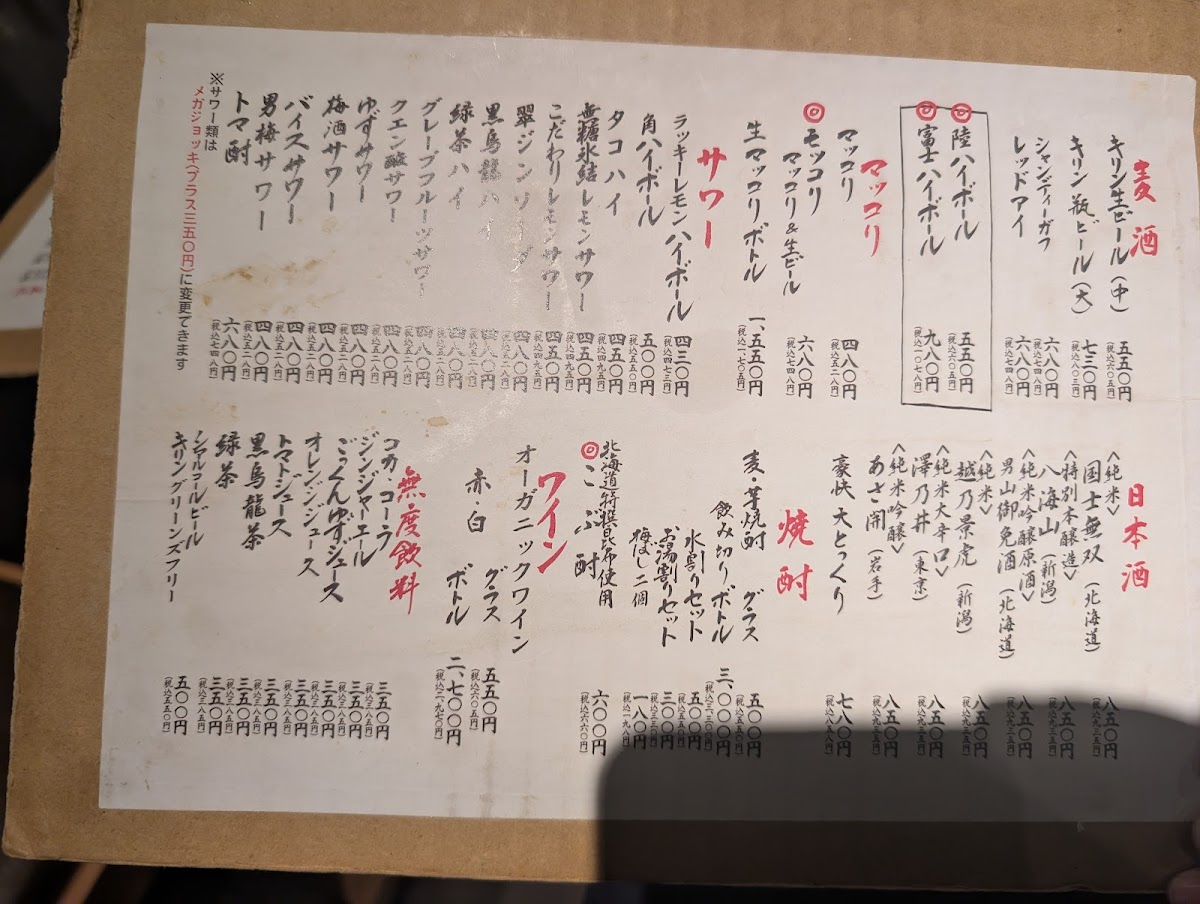 麦酒
キリン生ビール（中）
五五〇円
（税込六〇五円）
キリン瓶ビール（大）
七三〇円
（税込八〇三円）
シャンディーガフ
六八〇円
（税込七四八円）
レッドアイ
六八〇円
（税込七四八円）
◎陸ハイボール
五五〇円
（税込六〇五円）
◎富士ハイボール
九八〇円
（税込一〇七八円）
マッコリ
マッコリ
四八〇円
（税込五二八円）
◎モッコリ
マッコリ＆生ビール
六八〇円
（税込七四八円）
生マッコリボトル
一、五五〇円
（税込一七〇五円）
サワー
ラッキーレモンハイボール
四三〇円
（税込四七三円）
角ハイボール
五〇〇円
（税込五五〇円）
タコハイ
四五〇円
（税込四九五円）
無糖氷結レモンサワー
四五〇円
（税込四九五円）
こだわりレモンサワー
四五〇円
（税込四九五円）
翠ジンソーダ
四八〇円
黒烏龍ハイ
四八〇円
緑茶ハイ
四八〇円
グレープフルーツサワー
四八〇円
クエン酸サワー
四八〇円
（税込五二八円）
ゆずサワー
四八〇円
（税込五二八円）
梅酒サワー
四八〇円
（税込五二八円）
バイスサワー
四八〇円
（税込五二八円）
男梅サワー
四八〇円
（税込五二八円）
トマ酎
六八〇円
（税込七四八円）
※サワー類は
メガジョッキ（プラス三五〇円）に変更できます
日本酒
＜純米＞
国士無双（北海道）
八五〇円
（税込九三五円）
＜特別本醸造＞
八海山（新潟）
八五〇円
（税込九三五円）
＜純米吟醸原酒＞
男山御免酒（北海道）
八五〇円
（税込九三五円）
＜純米＞
越乃景虎（新潟）
八五〇円
（税込九三五円）
＜純米大辛口＞
澤乃井（東京）
八五〇円
（税込九三五円）
＜純米吟醸＞
あさ開（岩手）
八五〇円
（税込九三五円）
豪快大とっくり
七八〇円
（税込八五八円）
焼酎
麦・芋焼酎 グラス
五〇〇円
（税込五五〇円）
飲み切りボトル
三、〇〇〇円
（税込三三〇〇円）
水割りセット
五〇〇円
（税込五五〇円）
お湯割りセット
三〇〇円
（税込三三〇円）
梅ぼし二個
一八〇円
（税込一九八円）
北海道特撰昆布使用
◎こぶ酎
六〇〇円
（税込六六〇円）
ワイン
オーガニックワイン
赤・白 グラス
五五〇円
（税込六〇五円）
ボトル
二、七〇〇円
（税込二九七〇円）
無度飲料
コカ・コーラ
三五〇円
（税込三八五円）
ジンジャーエール
三五〇円
（税込三八五円）
ごっくんゆずジュース
三五〇円
（税込三八五円）
オレンジジュース
三五〇円
（税込三八五円）
トマトジュース
三五〇円
（税込三八五円）
黒烏龍茶
三五〇円
（税込三八五円）
緑茶
三五〇円
（税込三八五円）
ノンアルコールビール
キリングリーンズフリー
五〇〇円
（税込五五〇円）